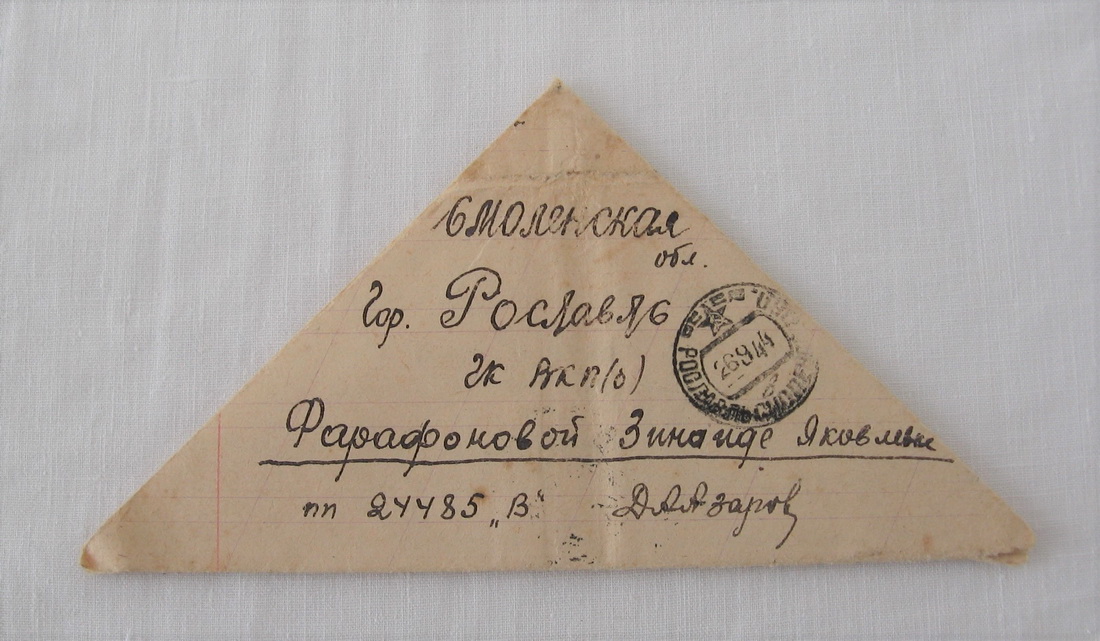 Смоленская
обл.
Гор. Рославль
ГК ВКП(б)
Фарафоновой Зинаиде Яковлевне
пп 24485 „В“ Д А Азаров
26 9 44
РОСЛАВЛЬ СМОЛЕН